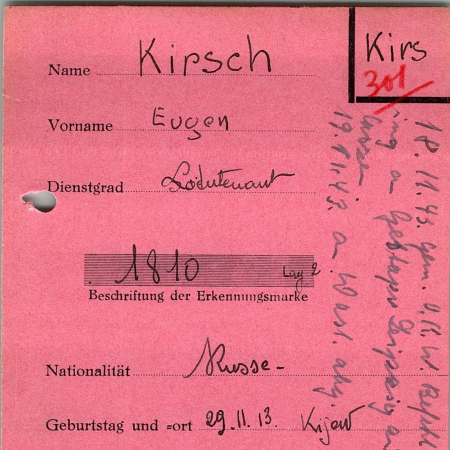 Kirs
301
Name Kirsch
Vorname Eugen
Dienstgrad Loeutenant
1810 Lag 2
Beschriftung der Erkennungsmarke
Nationalität Russe-
Geburtstag und =ort 29.11.13. Kijew
18.11.43. gem. O.K.W Befehl
an Gestapo Leipzig
19.11.43. a. West.